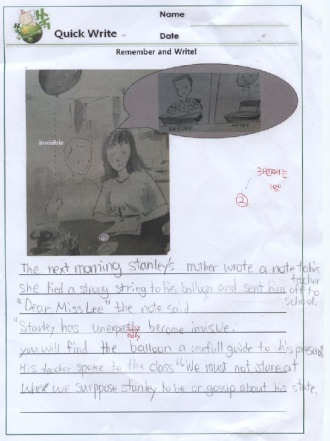 Name
Quick Write
Date
Remember and Write!
Invisible
BEFORE
AFTER
②
The next morning stanley's mother wrote a note to his teacher
she tied a strong string to his balloon and sent him off to school.
"Dear Miss Lee" the note said
"Stanley has unexpectedly become invisible.
you will find the balloon a usefull guide to his presence
His teacher spoke to the class "We must not stare at
where we surppose stanley to be or gossip about his state.